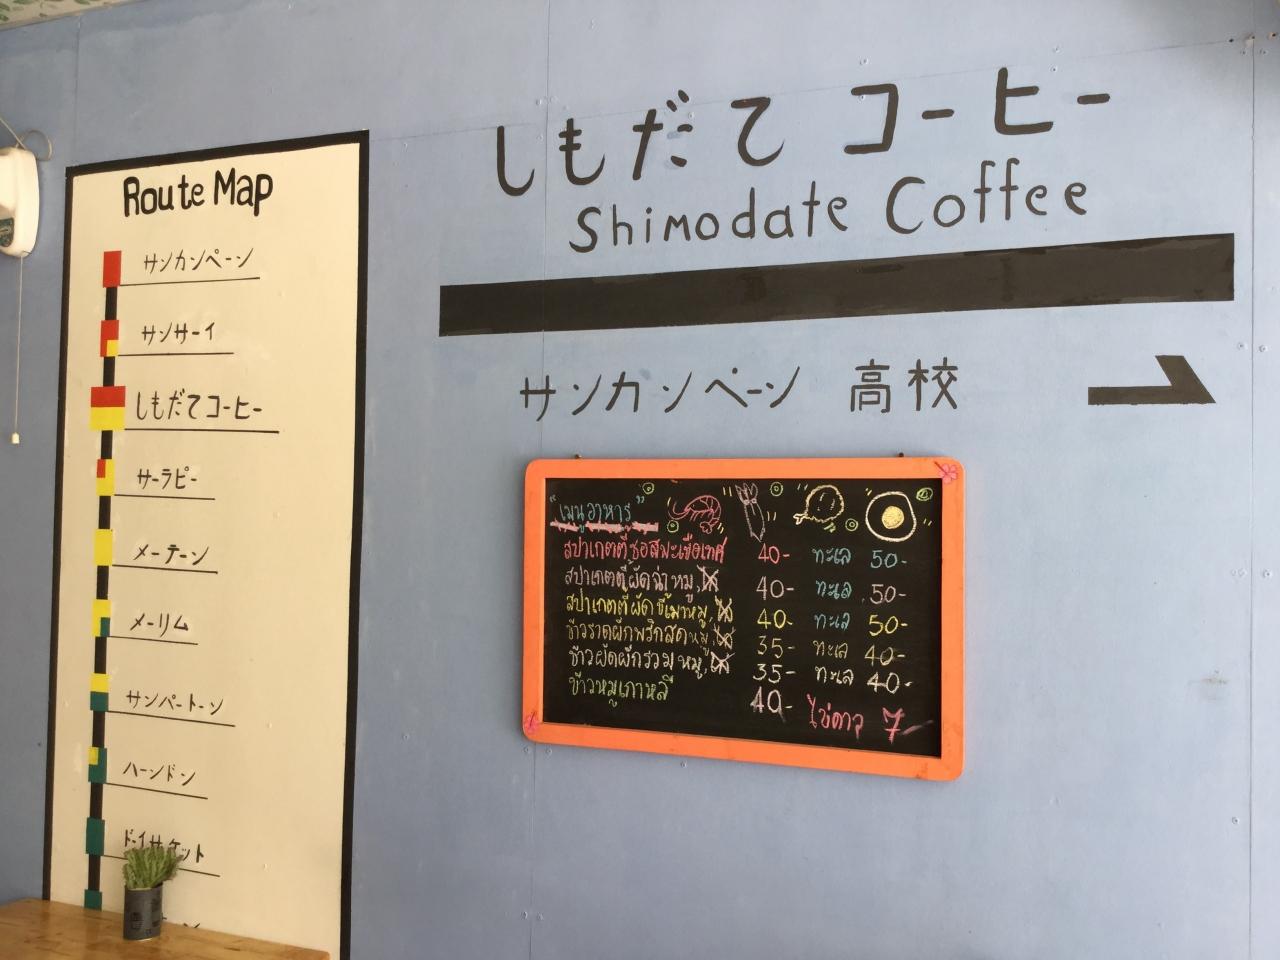 しもだて コーヒー
Shimodate Coffee
サンカンペーン 高校
Route Map
サンカンペーン
サンサーイ
しもだてコーヒー
サーラピー
メーテーン
メーリム
サンパートーン
ハーンドン
ドーイサケット
"เมนูอาหาร"
สปาเกตตี้ซอสมะเขือเทศ 40- ทะเล 50-
สปาเกตตี้ผัดฉ่าหมู, 40- ทะเล 50-
สปาเกตตี้ผัดขี้เมาหมู, 40- ทะเล 50-
ข้าวราดผักพริกสดหมู, 35- ทะเล 40-
ข้าวผัดผักรวมหมู, 35- ทะเล 40-
ข้าวหมูเกาหลี 40- ไข่ดาว 7-